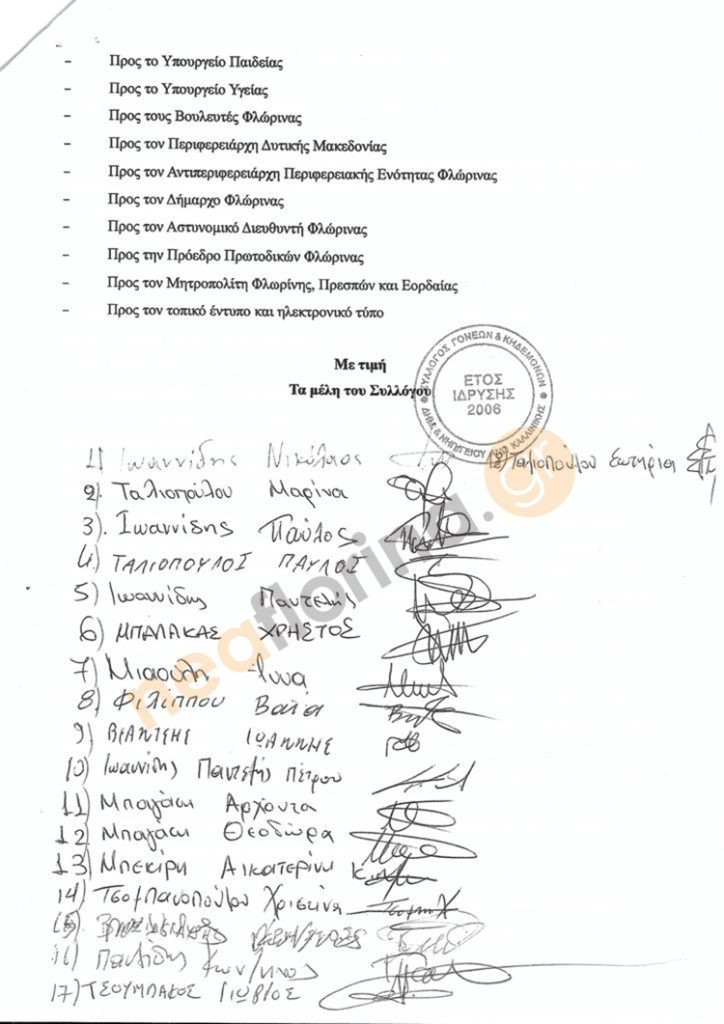 - Προς το Υπουργείο Παιδείας
- Προς το Υπουργείο Υγείας
- Προς τους Βουλευτές Φλώρινας
- Προς τον Περιφερειάρχη Δυτικής Μακεδονίας
- Προς τον Αντιπεριφερειάρχη Περιφερειακής Ενότητας Φλώρινας
- Προς τον Δήμαρχο Φλώρινας
- Προς τον Αστυνομικό Διευθυντή Φλώρινας
- Προς την Πρόεδρο Πρωτοδικών Φλώρινας
- Προς τον Μητροπολίτη Φλωρίνης, Πρεσπών και Εορδαίας
- Προς τον τοπικό έντυπο και ηλεκτρονικό τύπο
Με τιμή
Τα μέλη του Συλλόγου
ΣΥΛΛΟΓΟΣ ΓΟΝΕΩΝ & ΚΗΔΕΜΟΝΩΝ
ΕΤΟΣ
ΙΔΡΥΣΗΣ
2006
ΚΑΛΛΙΝΙΚΗΣ
1) Ιωαννίδης Νικόλαος
18) Ταλιοπούλου Σωτηρία
2) Ταλιοπούλου Μαρίνα
3) Ιωαννίδης Παύλος
4) ΤΑΛΙΟΠΟΥΛΟΣ ΠΑΥΛΟΣ
5) Ιωαννίδης Παντελής
6) ΜΠΑΛΑΚΑΣ ΧΡΗΣΤΟΣ
7) Μιαούλη Άννα
8) Φιλίππου Βάια
9) ΙΩΑΝΝΗΣ
10) Ιωαννίδης Παντελής Πέτρου
11) Αρχόντα
12) Θεοδώρα
13) Μπεκίρη Αικατερίνη
14) Τσομπανοπούλου Χριστίνα
15)
16) Κων/νος
17) ΤΣΟΥΜΠΑΚΟΣ
neaflorina.gr